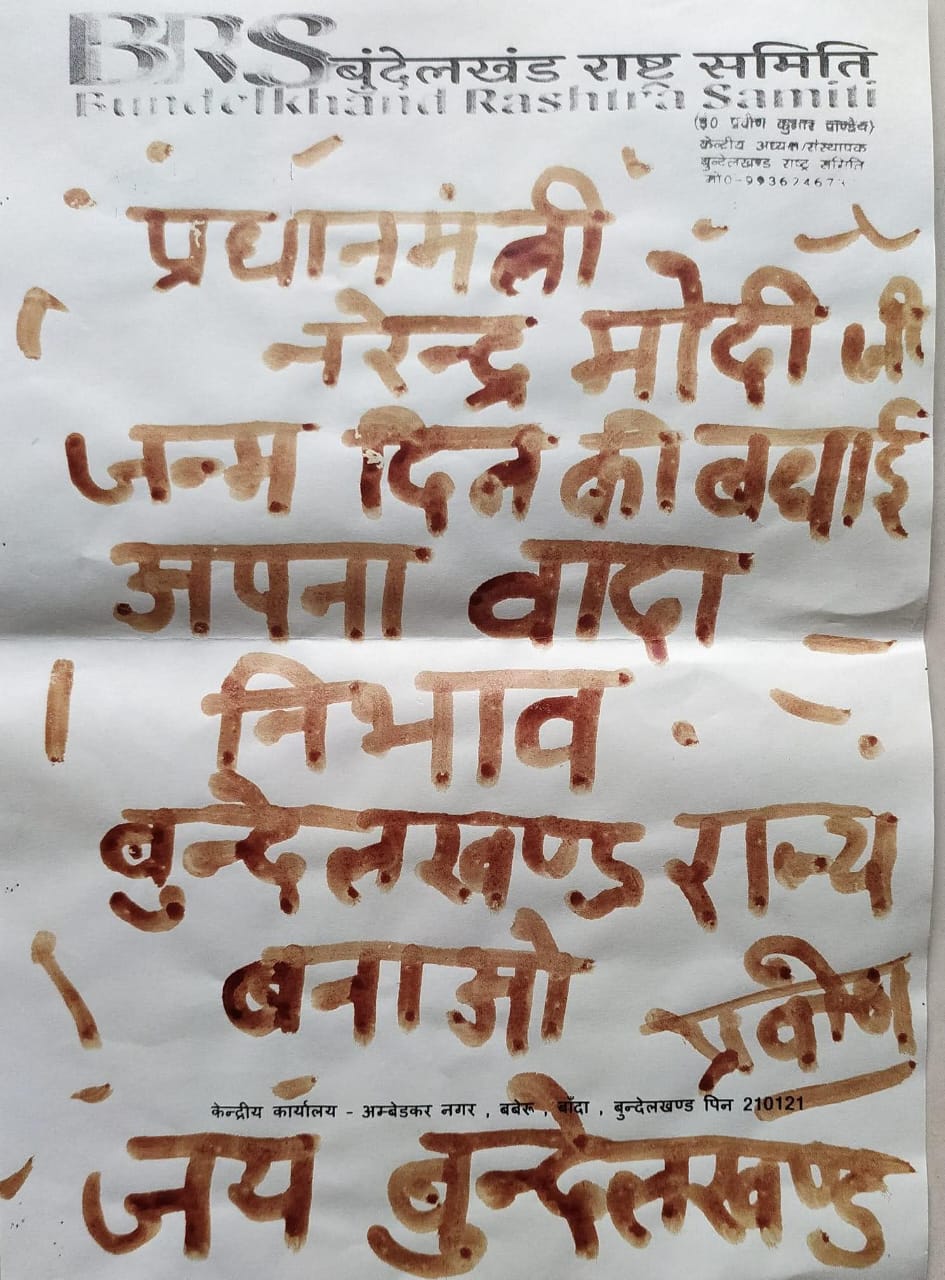 BRS बुंदेलखंड राष्ट्र समिति
Bundelkhand Rashtra Samiti
(इ0 प्रवीण कुमार पाण्डेय)
केन्द्रीय अध्यक्ष/संस्थापक
बुन्देलखण्ड राष्ट्र समिति
मो0-99362467
प्रधानमंत्री
नरेन्द्र मोदी जी
जन्म दिन की बधाई
अपना वादा
निभाव
बुन्देलखण्ड राज्य
बनाओ प्रवीण
केन्द्रीय कार्यालय - अम्बेडकर नगर , बबेरू , बाँदा , बुन्देलखण्ड पिन 210121
जय बुन्देलखण्ड